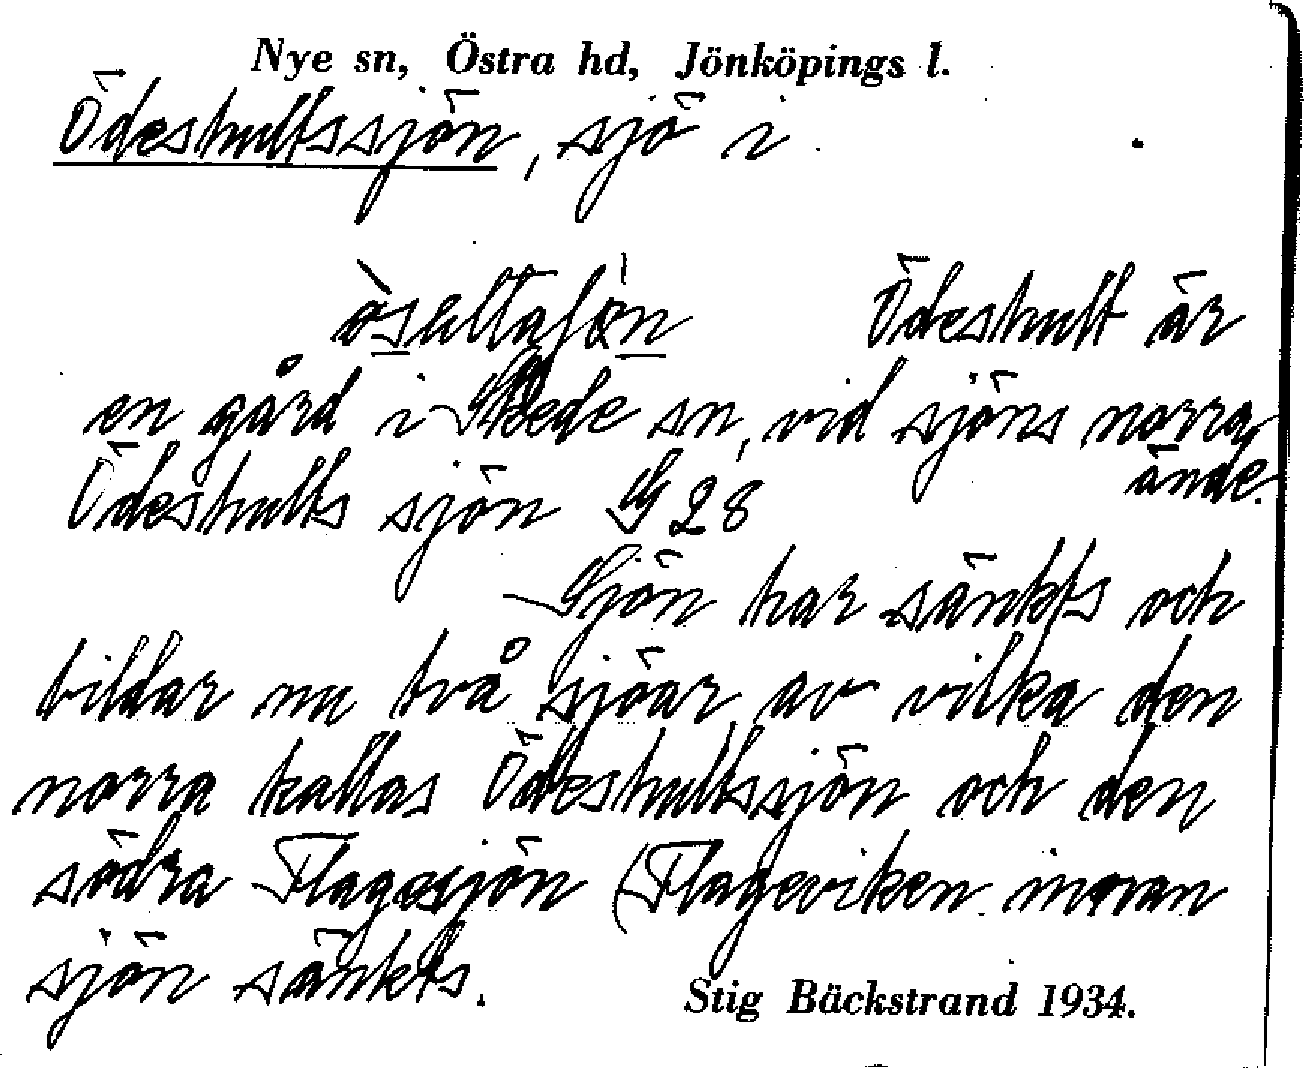 Nye sn, Östra hd, Jönköpings l.
Ödeshultssjön, sjö i
Ödeshult är
en gård i Skede sn, vid sjöns norra
ände.
Ödeshults sjön G 28
Sjön har sänkts och
bildar nu två sjöar, av vilka den
norra kallas Ödeshultssjön och den
södra Flagesjön (Flageviken innan
sjön sänkts.
Stig Bäckstrand 1934.